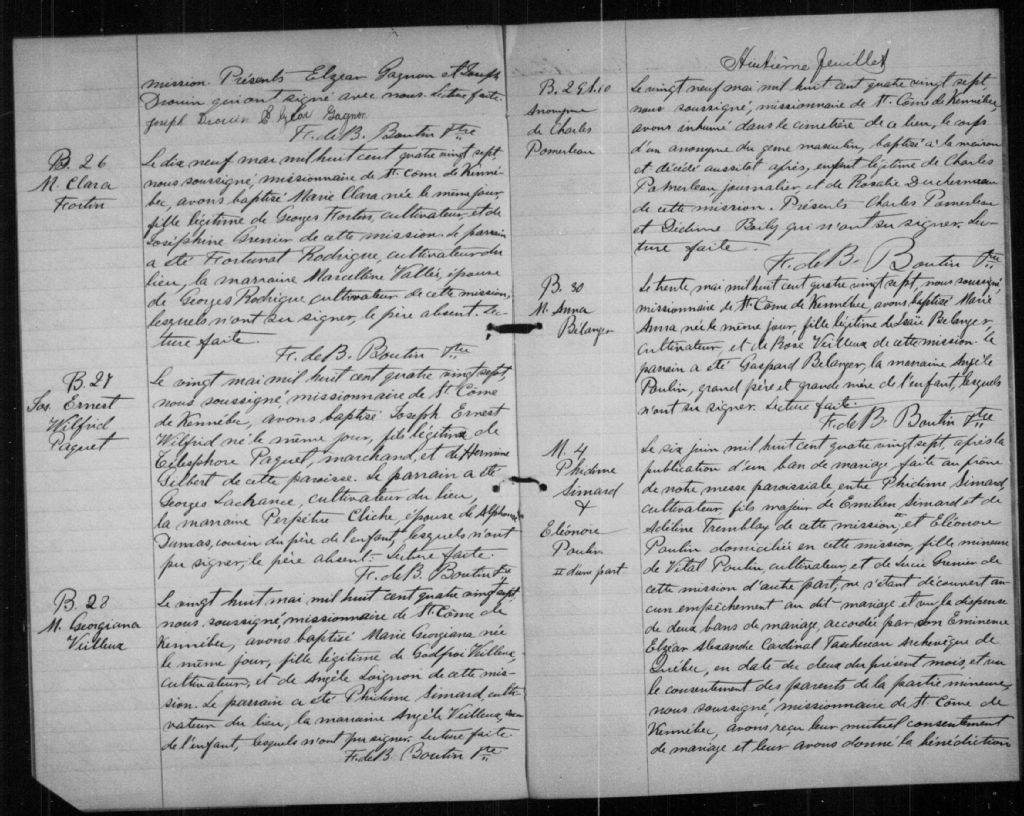 mission. Présents Elzear Gagnon et Joseph
Drouin qui ont signé avec nous. Lecture faite.
Joseph Drouin Elzear Gagnon
F. de B. Boutin Ptre
B. 26
M. Clara
Fortin
Le dix neuf mai mil huit cent quatre vingt sept,
nous soussigné, missionnaire de St. Côme de Kenné-
bec, avons baptisé Marie Clara née le même jour,
fille légitime de Georges Fortin, cultivateur, et de
Josephine Grenier de cette mission. Le parrain
a été Fortunat Rodrigue, cultivateur du
lieu, la marraine Marcelline Vallée épouse
de Georges Rodrigue cultivateur de cette mission,
lesquels n'ont su signer, le père absent. Lec-
ture faite.
F. de B. Boutin Ptre
B. 27
Jos. Ernest
Wilfrid
Paquet
Le vingt mai mil huit cent quatre vingt sept,
nous soussigné missionnaire de St. Côme
de Kennébec, avons baptisé Joseph Ernest
Wilfrid né le même jour, fils légitime de
Télesphore Paquet, marchand, et de Hermine
Gilbert de cette paroisse. Le parrain a été
Georges Lachance, cultivateur du lieu,
la marraine Perpétue Cliche, épouse de Alphonse
Dumas, cousin du père de l'enfant, lesquels n'ont
pu signer, le père absent. Lecture faite.
F. de B. Boutin Ptre
B. 28
M. Georgiana
Veilleux
Le vingt huit mai mil huit cent quatre vingt sept
nous soussigné, missionnaire de St. Côme de
Kennébec, avons baptisé Marie Georgiana née
le même jour, fille légitime de Godfroi Veilleux,
cultivateur, et de Angèle Loignon de cette mis-
sion. Le parrain a été Phidime Simard culti-
vateur du lieu, la marraine Angèle Veilleux,
de l'enfant, lesquels n'ont pu signer. Lecture faite.
F. de B. Boutin Ptre
Huitième feuillet
B. 29 & S. 10
Anonyme
de Charles
Pomerleau
Le vingt neuf mai mil huit cent quatre vingt sept,
nous soussigné, missionnaire de St. Côme de Kennébec,
avons inhumé dans le cimetière de ce lieu, le corps
d'un anonyme du genre masculin, baptisé à la maison
et décédé aussitot après, enfant légitime de Charles
Pomerleau journalier, et de Rosalie Duchesneau
de cette mission. Présents Charles Pomerleau
et Gédéon Bailly qui n'ont su signer. Lec-
ture faite.
F. de B. Boutin Ptre
B. 30
M. Anna
Bélanger
Le trente mai mil huit cent quatre vingt sept, nous soussigné,
missionnaire de St. Côme de Kennébec, avons baptisé Marie
Anna née le même jour, fille légitime de Isaïe Bélanger,
cultivateur, et de Rose Veilleux de cette mission. Le
parrain a été Gaspard Bélanger, la marraine Angèle
Poulin, grand père et grande mère de l'enfant, lesquels
n'ont su signer. Lecture faite.
F. de B. Boutin Ptre
M. 4
Phidime
Simard
&
Eléonore
Poulin
II d'une part
Le six juin mil huit cent quatre vingt sept après la
publication d'un ban de mariage, faite au prône
de notre messe paroissiale, entre Phidime Simard
cultivateur, fils majeur de Emilien Simard et de
Adéline Tremblay de cette mission, II et Eléonore
Poulin domiciliée en cette mission, fille mineure
de Vital Poulin, cultivateur, et de Lucie Grenier de
cette mission d'autre part, ne s'étant découvert au-
cun empêchement au dit mariage et vu la dispense
de deux bans de mariage, accordée par son Eminence
Elzéar Alexandre Cardinal Taschereau Archevêque de
Québec, en date du deux du présent mois, et vu
le consentement des parents de la partie mineure,
nous soussigné, missionnaire de St. Côme de
Kennébec, avons reçu leur mutuel consentement
de mariage et leur avons donné la bénédiction